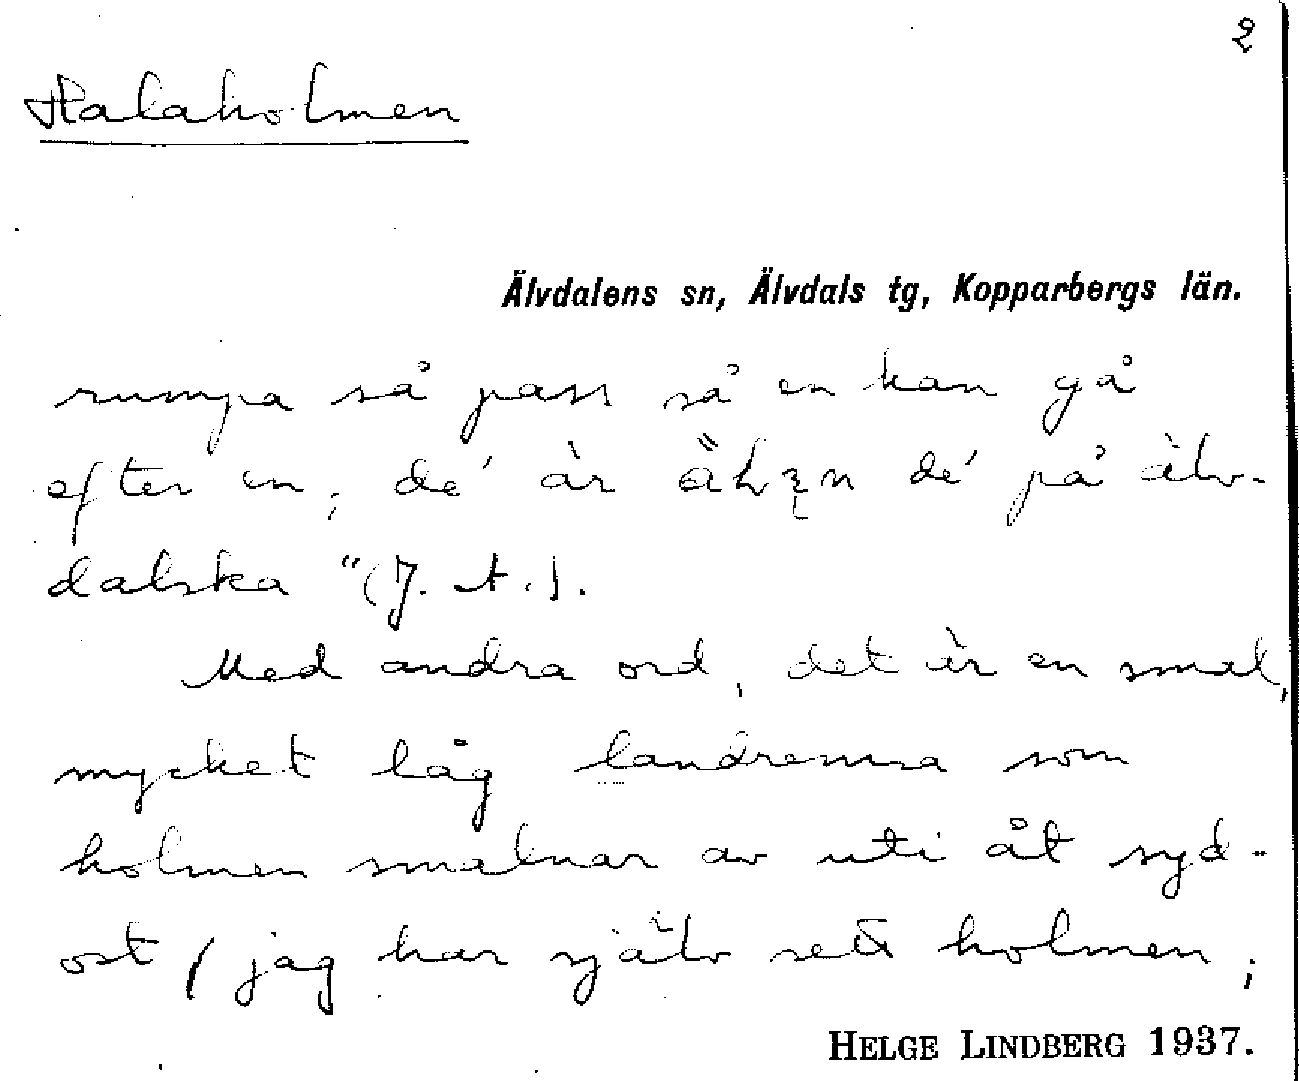 2
Halaholmen
Älvdalens sn, Älvdals tg, Kopparbergs län.
rumpa så pass så en kan gå
efter en, de' är de' på älv-
dalska "(J. A.).
Med andra ord, det är en smal,
mycket låg landremsa som
holmen smalnar av uti åt syd-
ost (jag har själv sett holmen;
HELGE LINDBERG 1937.